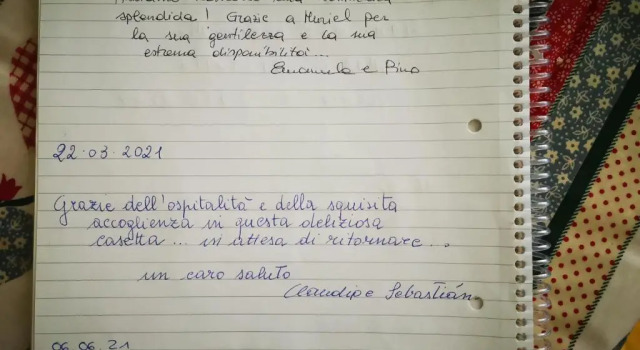 splendida! Grazie a Muriel per
la sua gentilezza e la sua
estrema disponibilità...
Emanuela e Pino
22.03.2021
Grazie dell'ospitalità e della squisita
accoglienza in questa deliziosa
casetta... in attesa di ritornare...
un caro saluto
Claudio e Sebastián
06.06.21